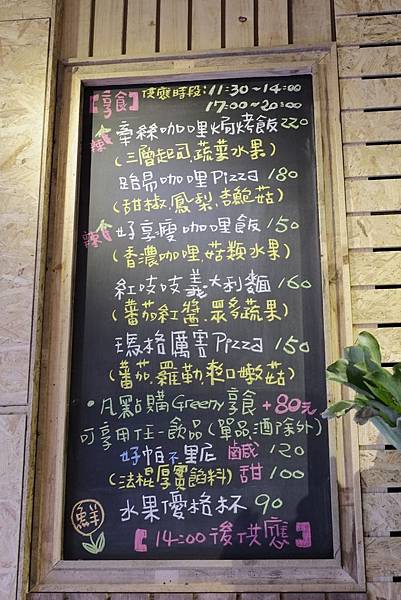 【享食】供應時段:11:30~14:00
17:00~20:00
辣 牽絲咖哩焗烤飯220
(三層起司.蔬菜水果)
跆昜咖哩Pizza 180
(甜椒.鳳梨.杏鮑菇)
辣 好享瘦咖哩飯150
(香濃咖哩.菇類水果)
紅吱吱義大利麵160
(蕃茄紅醬.眾多蔬果)
瑪格厲害Pizza 150
(蕃茄.羅勒.爽口嫩菇)
•凡點購Greeny享食+80元
可享用任一飲品(單品.酒除外)
好帕不里尼 鹹120
(法棍厚實餡料) 甜100
鮮 水果優格杯 90
【14:00後供應】